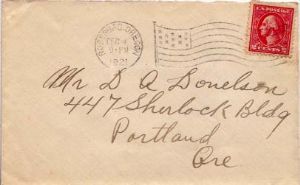 ROSEBURG, OREGON
FEB 4
9-PM
1921
U.S. POSTAGE
2 CENTS 2
Mr D A Donelson
447 Sherlock Bldg
Portland
Ore